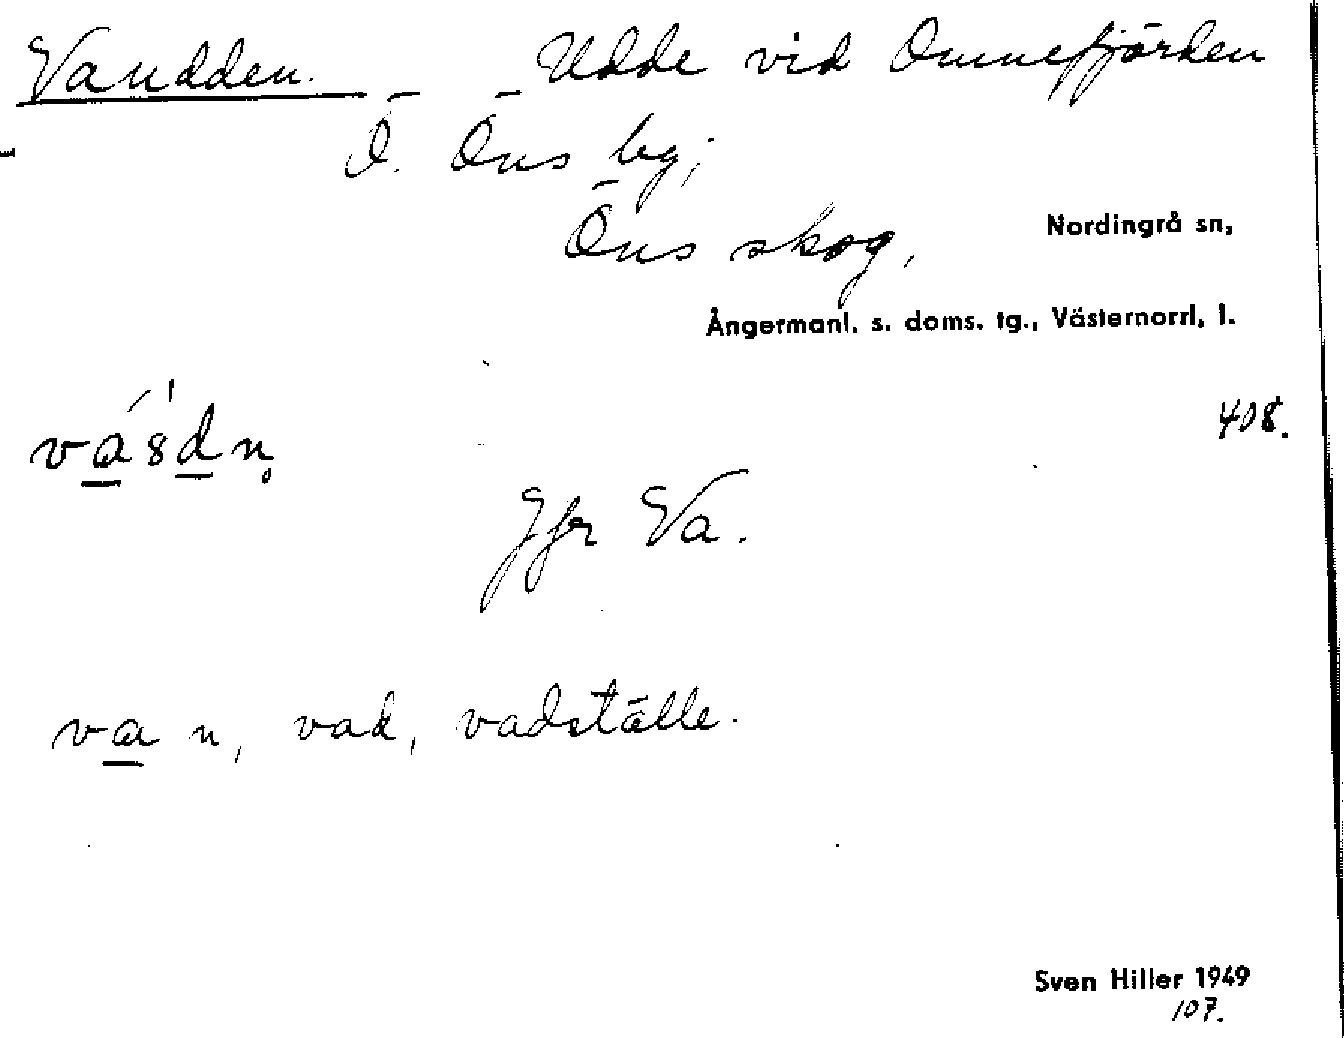 Vaudden. Udde vid Omnefjärden
Ö. Öns by;
Öns skog,
Nordingrå sn,
Ångermanl. s. doms. tg., Västernorrl. l.
408.
Jfr Va.
va n, vad, vadställe.
Sven Hiller 1949
107.